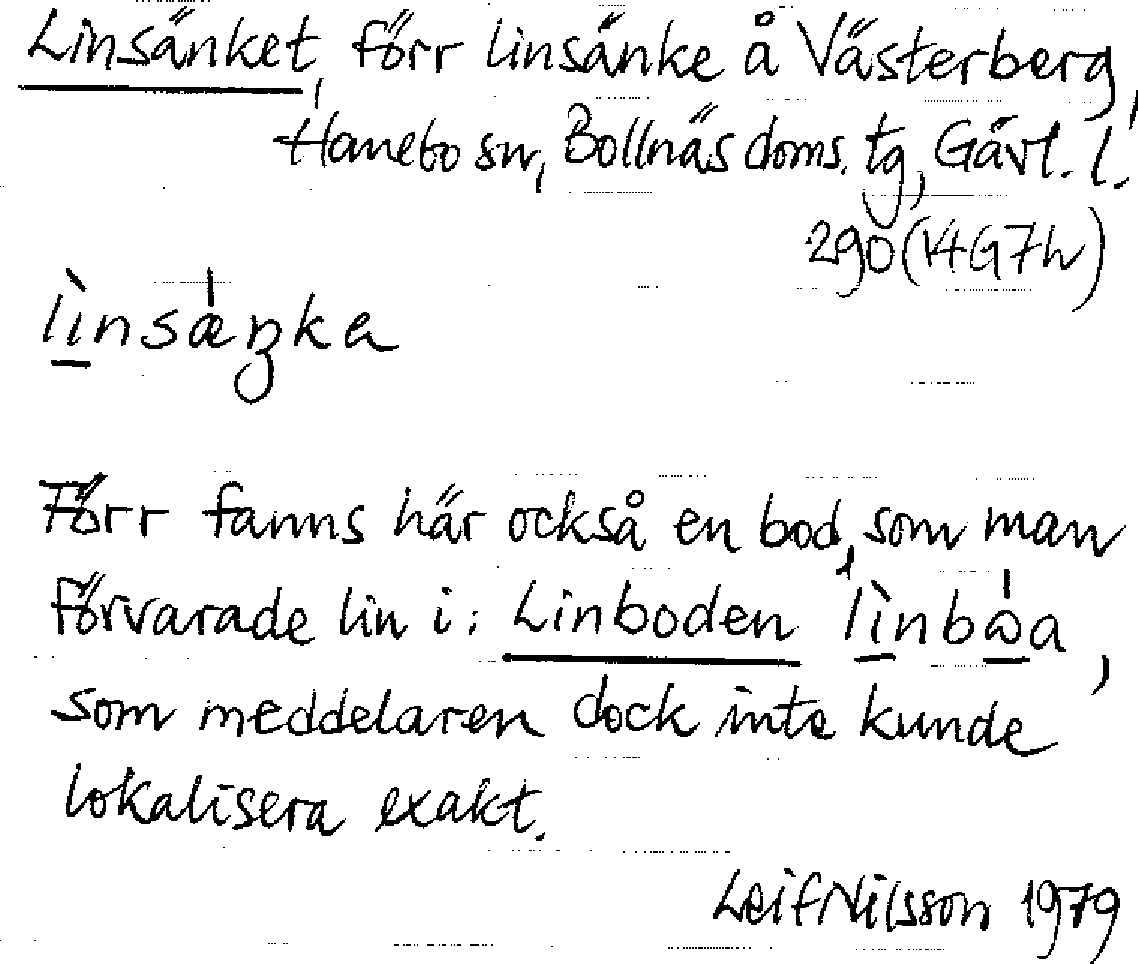 Linsänket, förr linsänke å Västerberg,
Hanebo sn, Bollnäs doms. tg, Gävl. l.
290 (14G7h)
lìnsæ̀ŋka
Förr fanns här också en bod, som man
förvarade lin i: Linboden lìnbὼa,
som meddelaren dock inte kunde
lokalisera exakt.
Leif Nilsson 1979